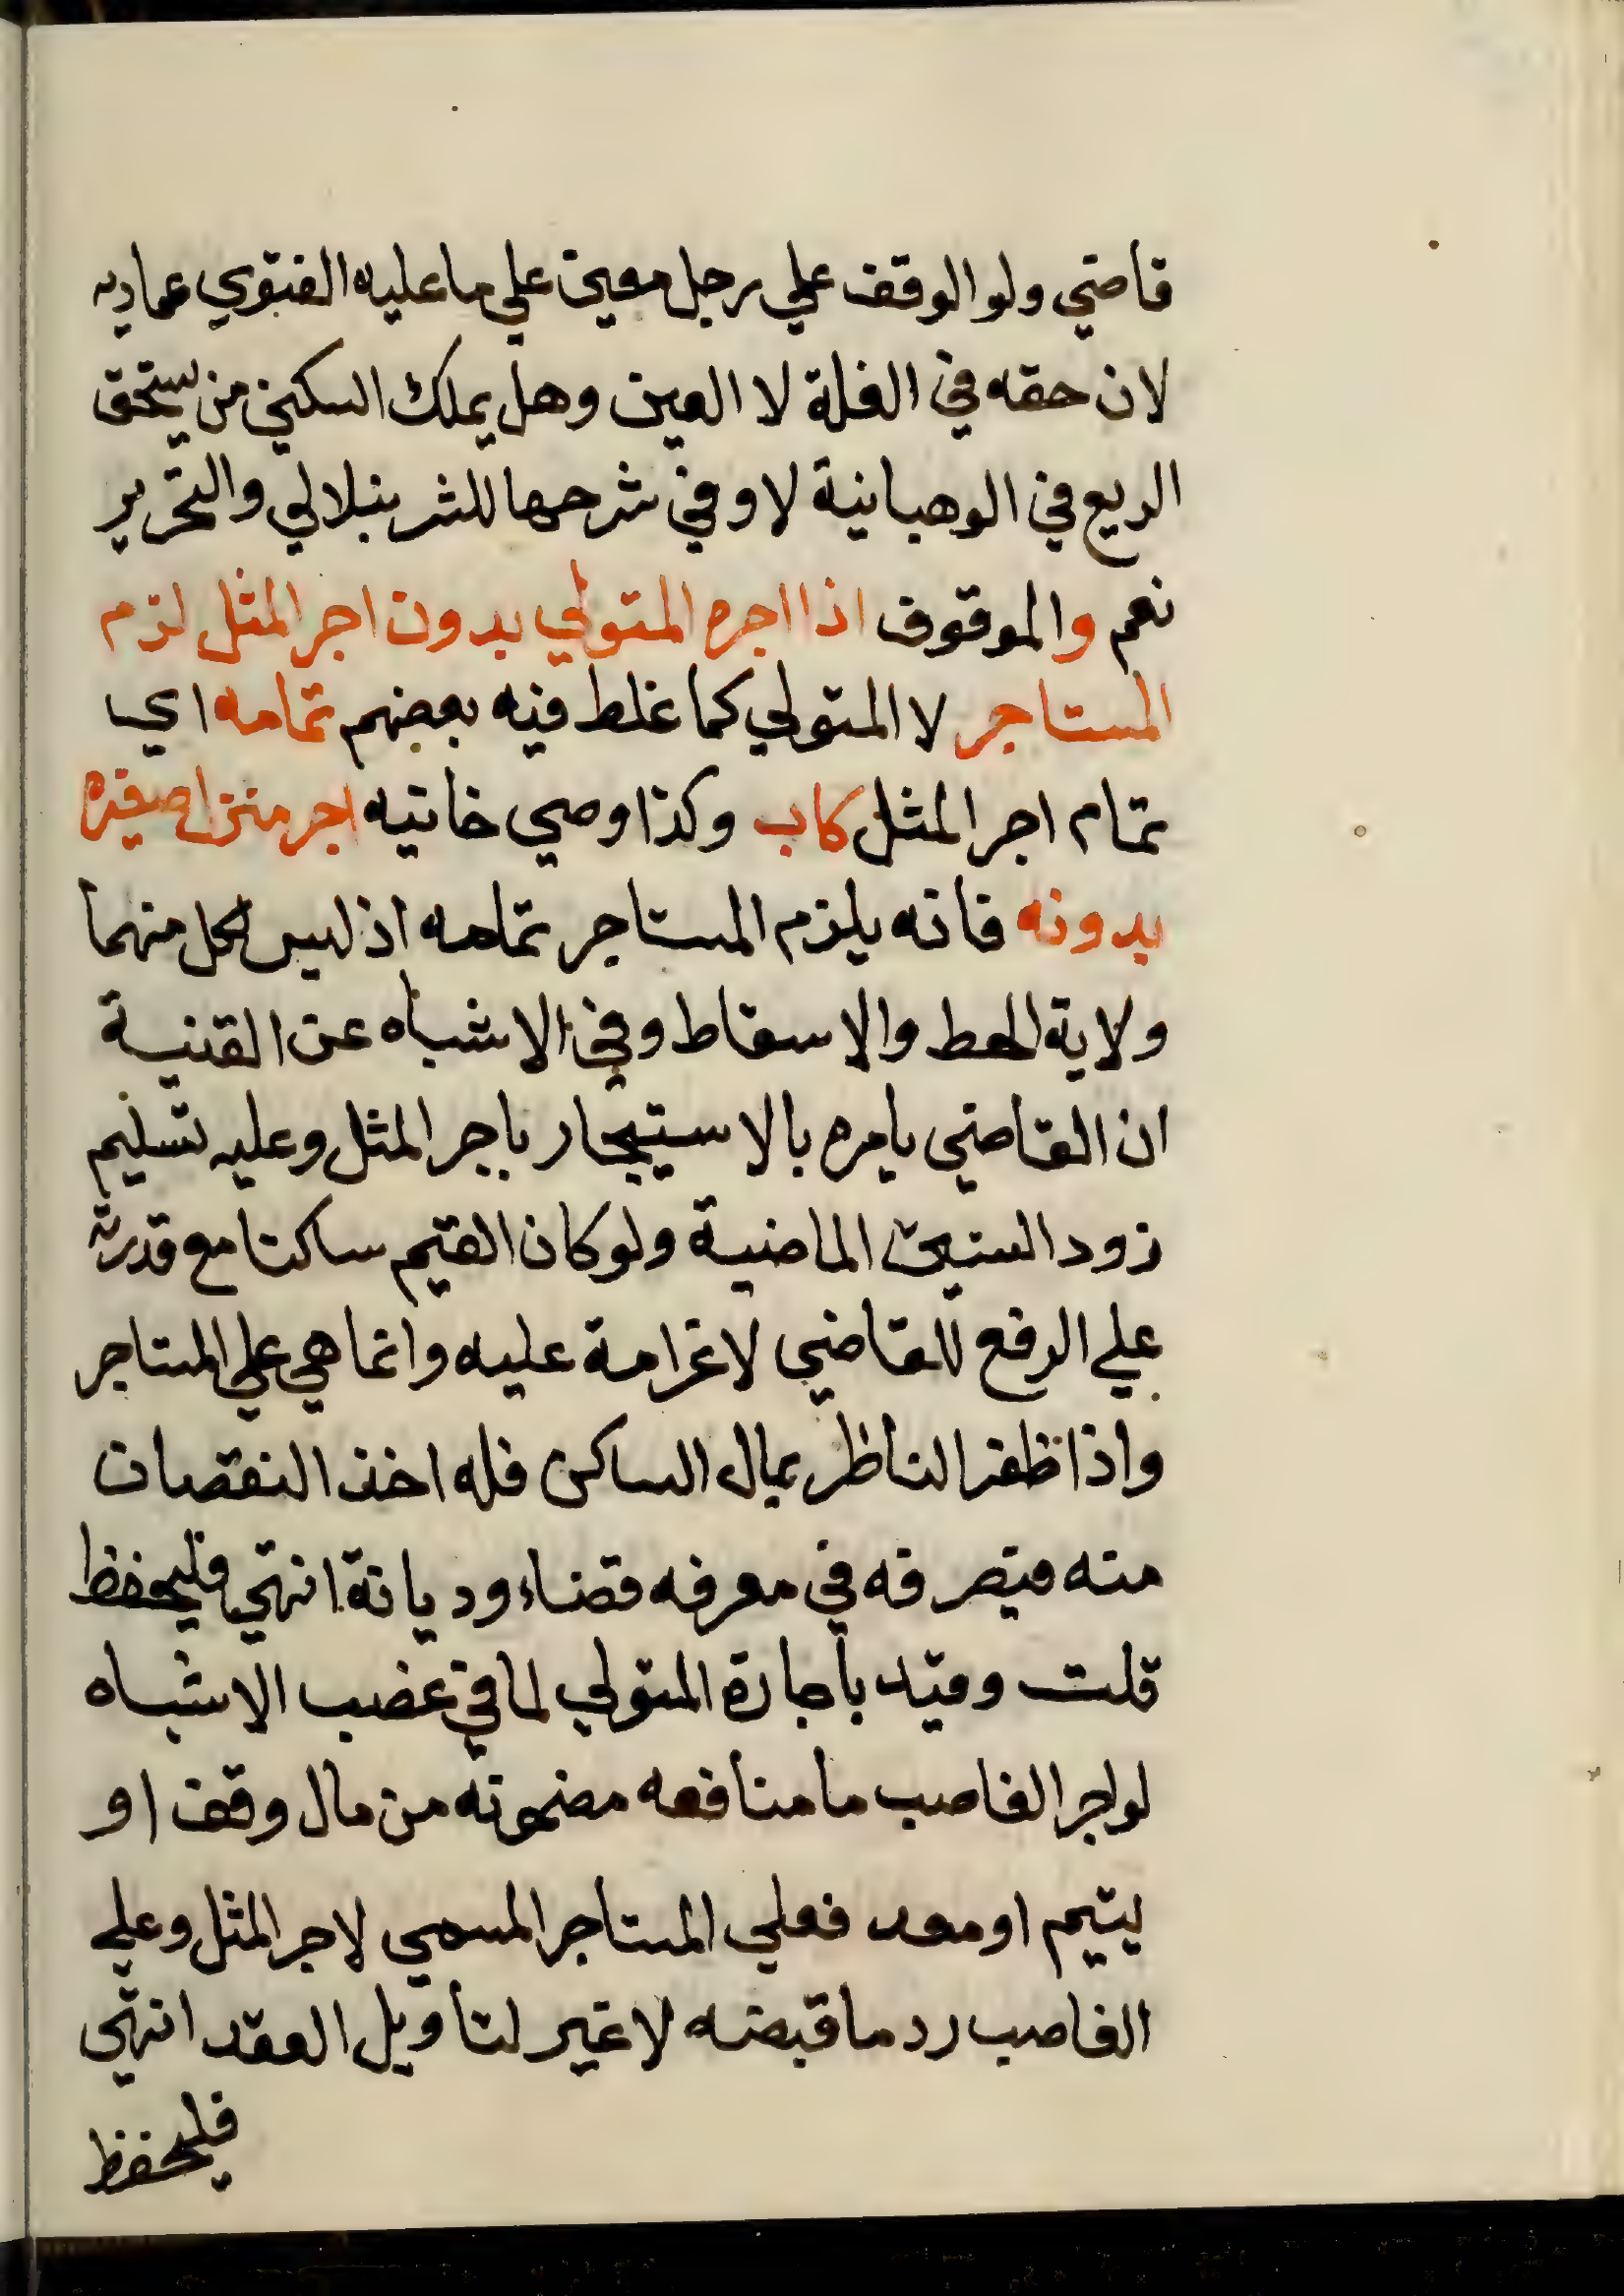 قاضي ولو الوقف علي رجل معين علي ما عليه الفتوي عماديه
لان حقه في الغلة لا العين وهل يملك السكني من يستحق
الريع في الوهبانية لا وفي شرحها للشرنبلالي والتحرير
نعم والموقوف اذا اجره المتولي بدون اجر المثل لزم
المستاجر لا المتولي كما غلط فيه بعضهم تمامه اي
تمام اجر المثل كاب وكذا وصي خانيه اجر منزل صغيره
بدونه فانه يلزم المستاجر تمامه اذ ليس لكل منهما
ولاية الحط والاسقاط وفي الاشباه عن القنية
ان القاضي يامره بالاستيجار باجر المثل وعليه تسليم
زود السنين الماضية ولو كان القيم ساكنا مع قدرته
علي الرفع للقاضي لا غرامة عليه وانما هي علي المستاجر
واذا ظفر الناظر بمال الساكن فله اخذ النقصان
منه فيصرفه في مصرفه قضاء وديانة انتهي فليحفظ
قلت وقيد باجارة المتولي لما في غصب الاشباه
لو اجر الغاصب ما منافعه مضمونه من مال وقف او
يتيم او معد فعلي المستاجر المسمي لاجر المثل وعلي
الغاصب رد ما قبضه لا غير لتأويل العقد انتهي
فليحفظ